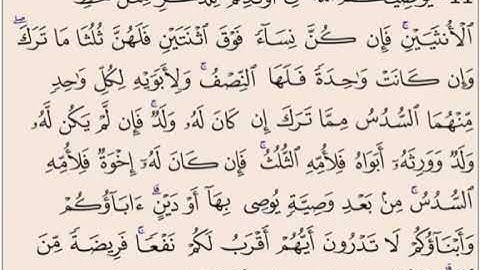 11 يُوصِيكُمُ ٱللَّهُ فِىٓ أَوْلَٰدِكُمْ لِلذَّكَرِ مِثْلُ حَظِّ
ٱلْأُنثَيَيْنِ ۚ فَإِن كُنَّ نِسَآءً فَوْقَ ٱثْنَتَيْنِ فَلَهُنَّ ثُلُثَا مَا تَرَكَ ۖ
وَإِن كَانَتْ وَٰحِدَةً فَلَهَا ٱلنِّصْفُ ۚ وَلِأَبَوَيْهِ لِكُلِّ وَٰحِدٍ
مِّنْهُمَا ٱلسُّدُسُ مِمَّا تَرَكَ إِن كَانَ لَهُۥ وَلَدٌ ۚ فَإِن لَّمْ يَكُن لَّهُۥ
وَلَدٌ وَوَرِثَهُۥٓ أَبَوَاهُ فَلِأُمِّهِ ٱلثُّلُثُ ۚ فَإِن كَانَ لَهُۥٓ إِخْوَةٌ فَلِأُمِّهِ
ٱلسُّدُسُ ۚ مِنۢ بَعْدِ وَصِيَّةٍ يُوصِى بِهَآ أَوْ دَيْنٍ ۗ ءَابَآؤُكُمْ
وَأَبْنَآؤُكُمْ لَا تَدْرُونَ أَيُّهُمْ أَقْرَبُ لَكُمْ نَفْعًا ۚ فَرِيضَةً مِّنَ